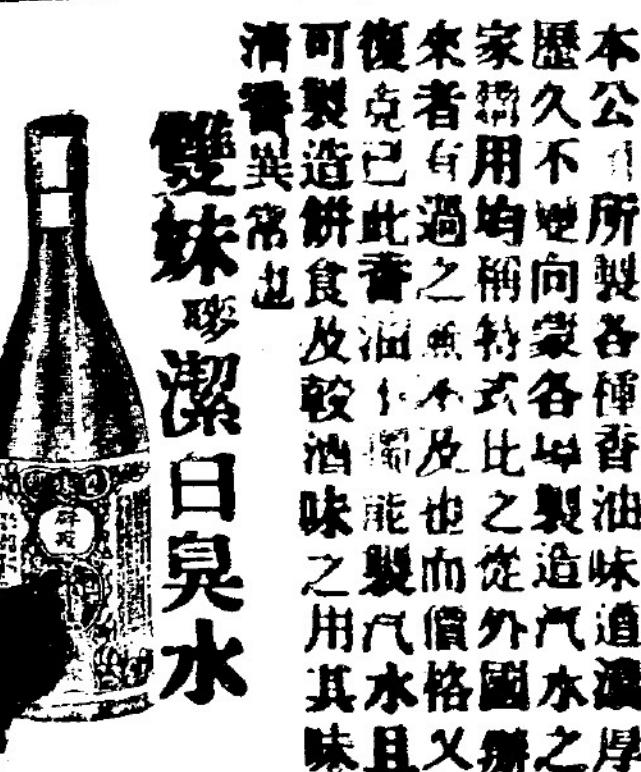 本公司所製各種香油味道濃厚
歷久不變向蒙各埠製造汽水之
家購用均稱特式比之從外國辦
來者有過之無不及也而價格又
復克已此香油不獨能製汽水且
可製造餅食及較酒味之用其味
清香異常也
雙妹嘜潔日臭水